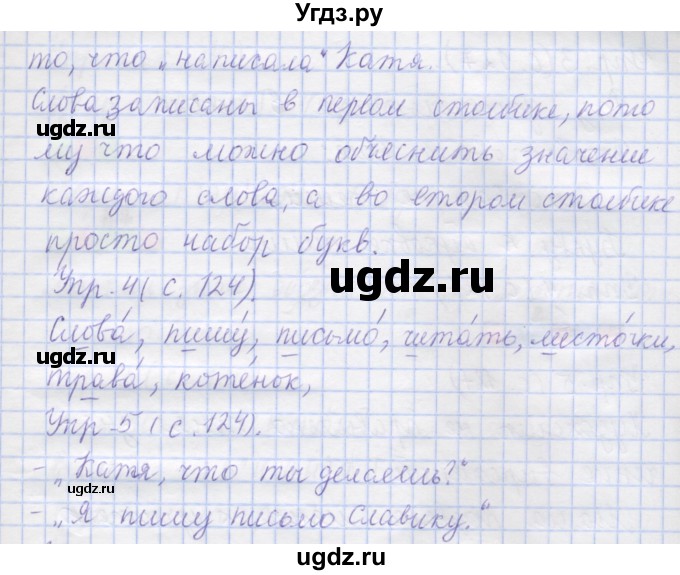 Угдз.ру
то, что „написала“ Катя.
Слова записаны в первом столбике, пото
му что можно объяснить значение
каждого слова, а во втором столбике
просто набор букв.
Упр. 4 ( с. 124).
Слова́, пишу́, письмо́, чита́ть, листо́чки,
трава́, котёнок,
Упр. 5 ( с. 124).
- „Катя, что ты делаешь?“
- „Я пишу письмо Славику.“
ugdz.ru
ugdz.ru
ugdz.ru
ugdz.ru
ugdz.ru
ugdz.ru
ugdz.ru
ugdz.ru